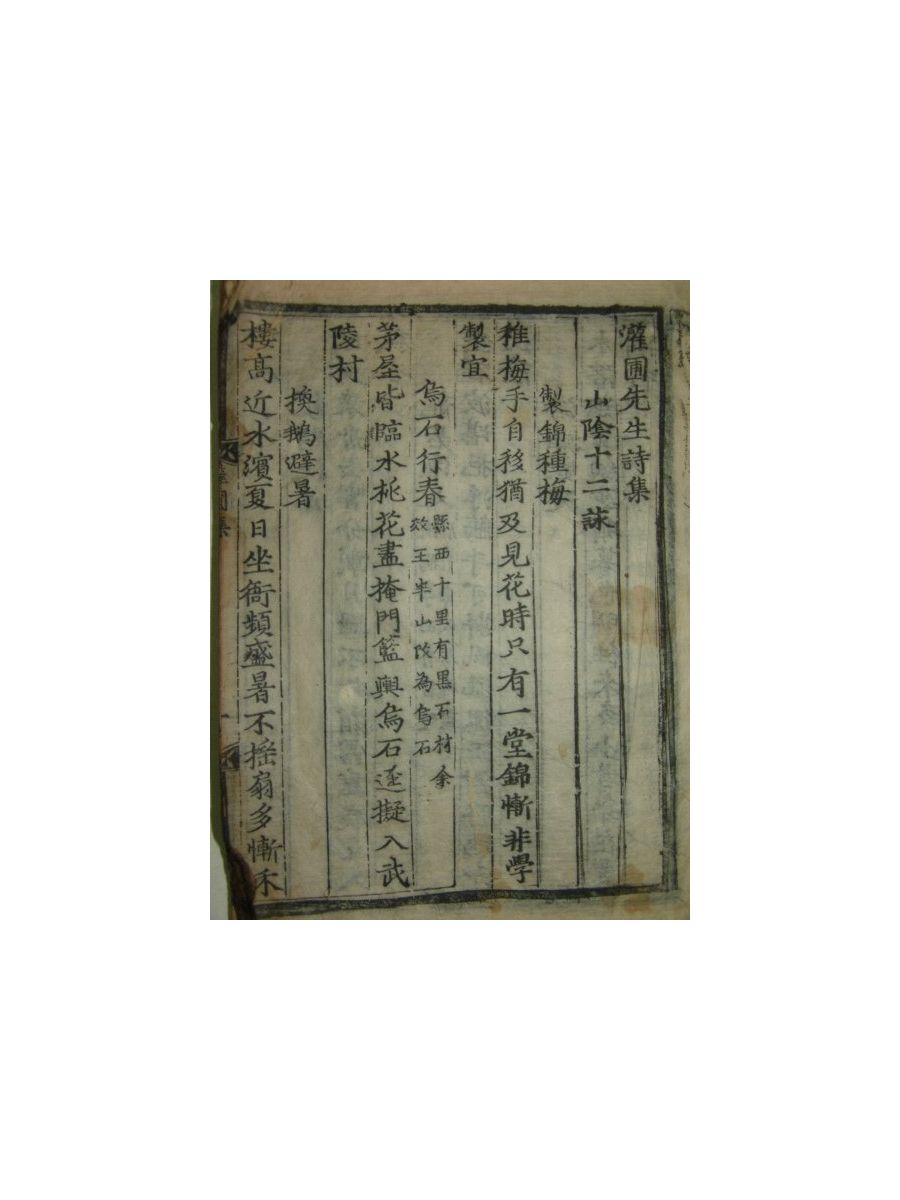 灌圃先生詩集
山陰十二詠
製錦種梅
稚梅手自移猶及見花時只有一堂錦慚非學
製宜
烏石行春
縣西十里有黑石村余
效王半山改為烏石
茅屋皆臨水桃花盡掩門籃輿烏石逕擬入武
陵村
換鵝避暑
樓高近水濱夏日坐衙頻盛暑不揺扇多慚禾